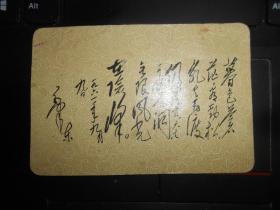 暮色苍
茫看劲松
乱云飞渡
仍从容
天生一个仙人洞
无限风光
在险峰。
一九六一年九月
九日
毛泽东
Alt